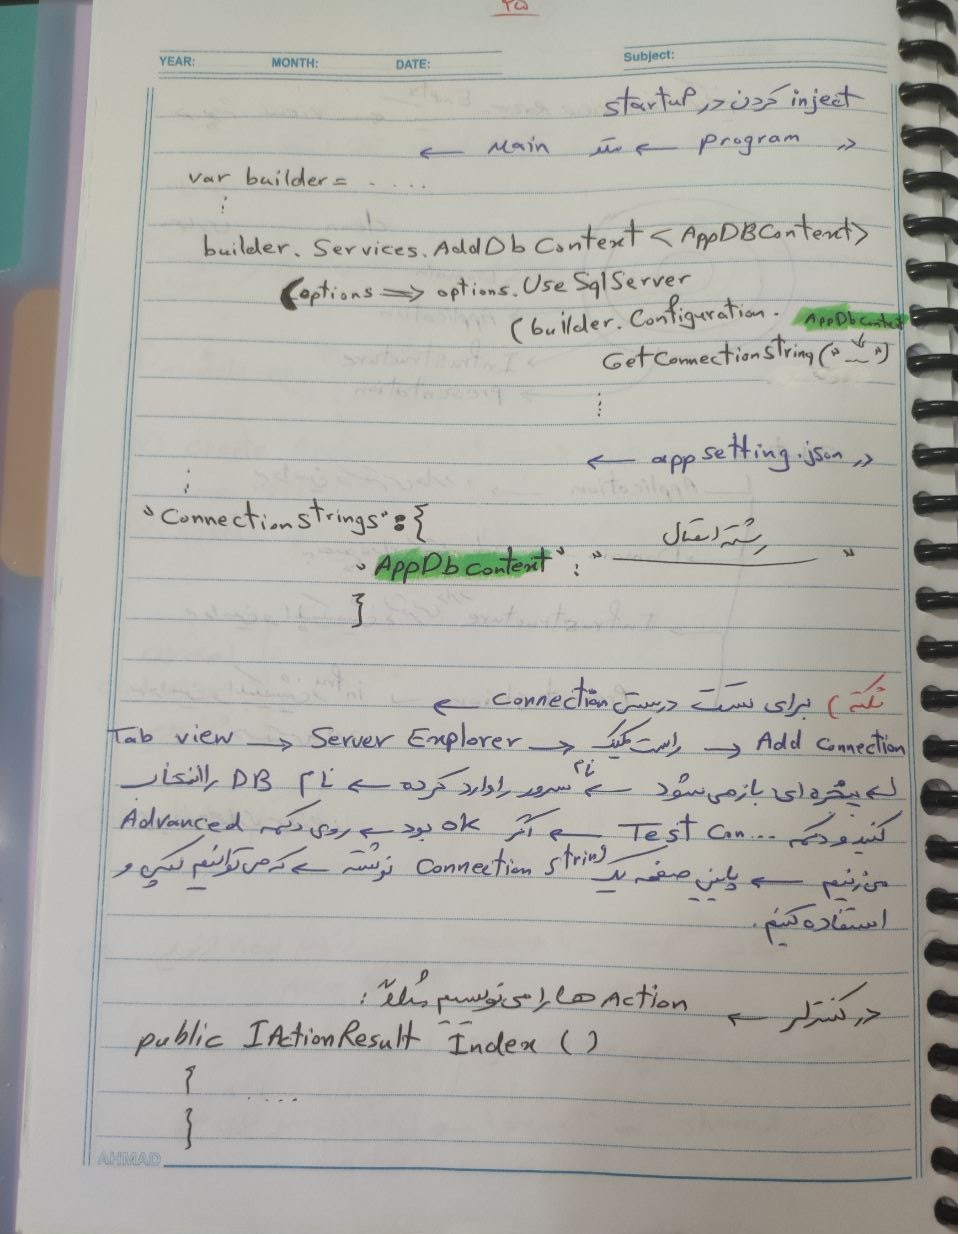 ۲۵
YEAR: MONTH: DATE: Subject:
inject کردن در startup
در Program ← متد Main ←
var builder = ....
⋮
builder.Services.AddDbContext <AppDBContext>
(options => options.UseSqlServer
(builder.Configuration.
AppDbContext
GetConnectionString("__")
⋮
در appsetting.json ←
⋮
"Connectionstrings":{
"AppDbcontext" : "رشته اتصال"
}
نکته) برای تست درستی Connection ←
Tab view → Server Explorer → راست کلیک → Add connection
پنجره ای باز می‌شود ← نام سرور را وارد کرده ← نام DB را انتخاب
کنید و دکمه Test Con... ← اگر ok بود ← روی دکمه Advanced
می‌زنیم ← پایین صفحه یک Connection string نوشته ← که می‌توانیم کپی و
استفاده کنیم.
در کنترلر ← Action ها را می‌نویسیم مثلاً :
public IActionResult Index ()
{
....
}
AHMAD